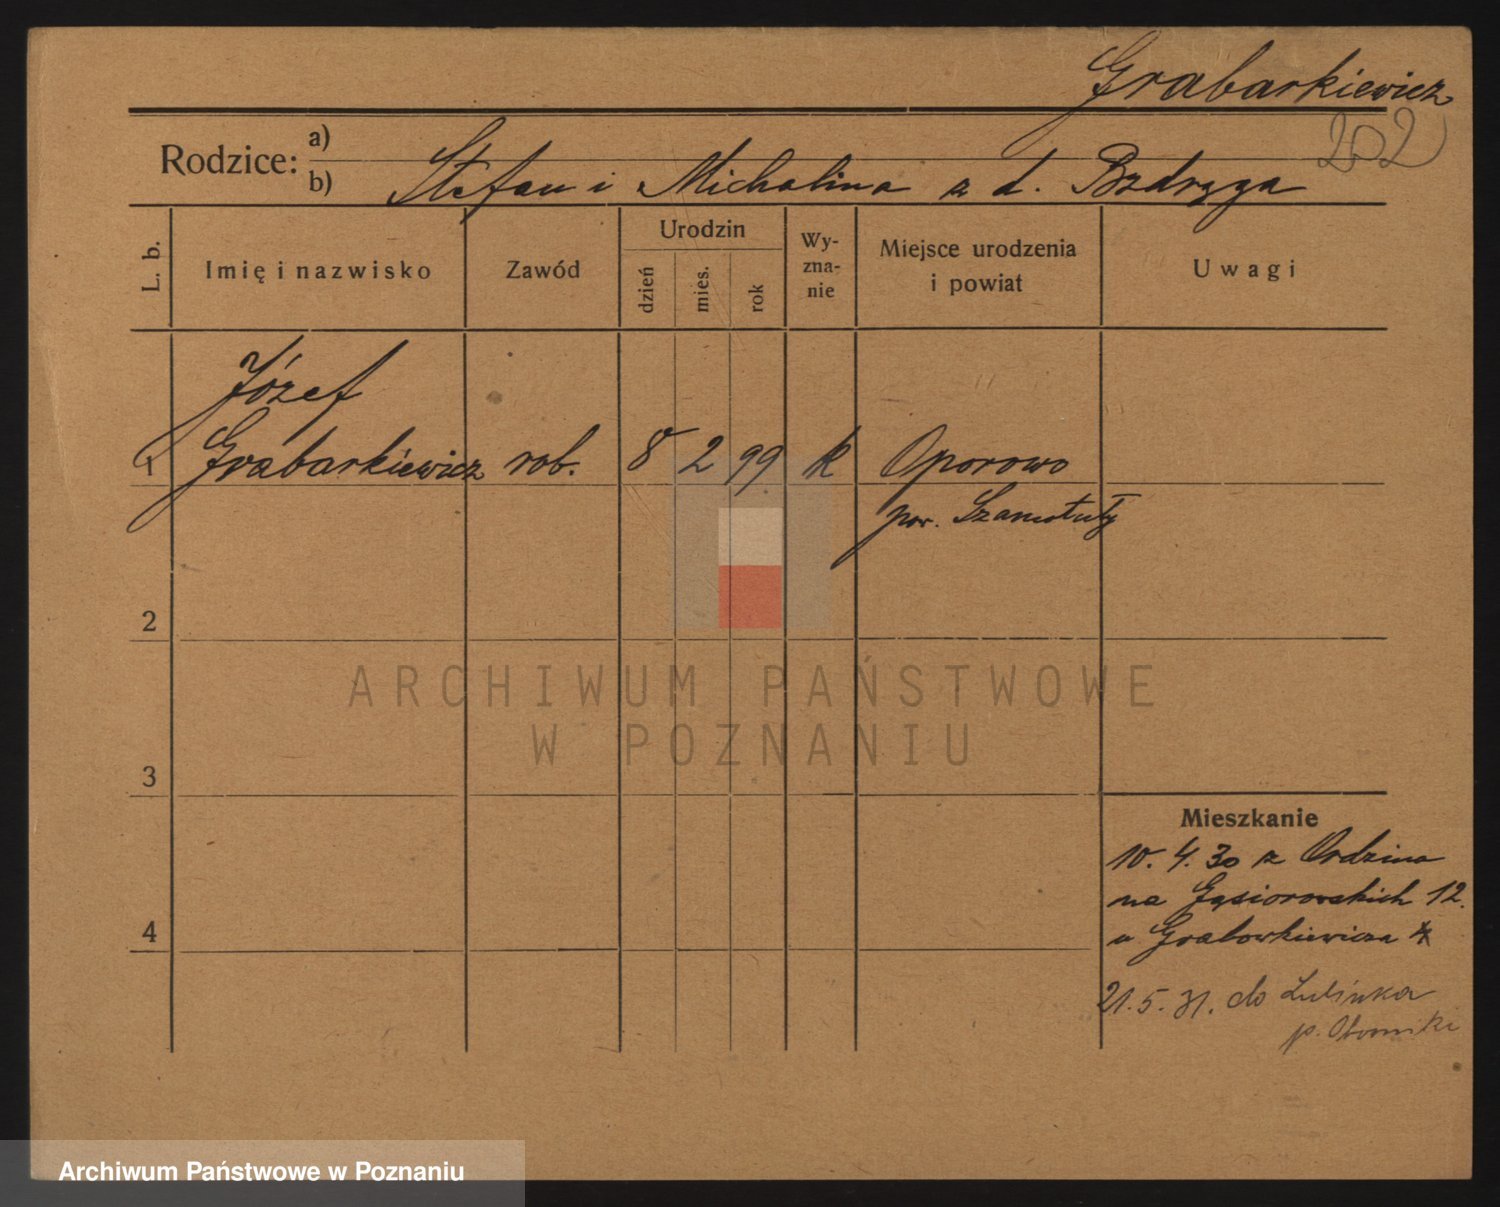 Grabarkiewicz
202
Rodzice: a)
b) Stefan i Michalina z d. Bzdręga
L. b.
Imię i nazwisko
Zawód
Urodzin
dzień
mies.
rok
Wy-
zna-
nie
Miejsce urodzenia
i powiat
Uwagi
Józef
1 Grabarkiewicz rob. 8 2 99 k Oporowo
pow. Szamotuły
2
3
4
Mieszkanie
10. 4. 30 z
na Gąsiorowskich 12.
u Grabowkiewicza
21. 5. 31. do Lulinka
p. Oborniki
ARCHIWUM PAŃSTWOWE
W POZNANIU
Archiwum Państwowe w Poznaniu